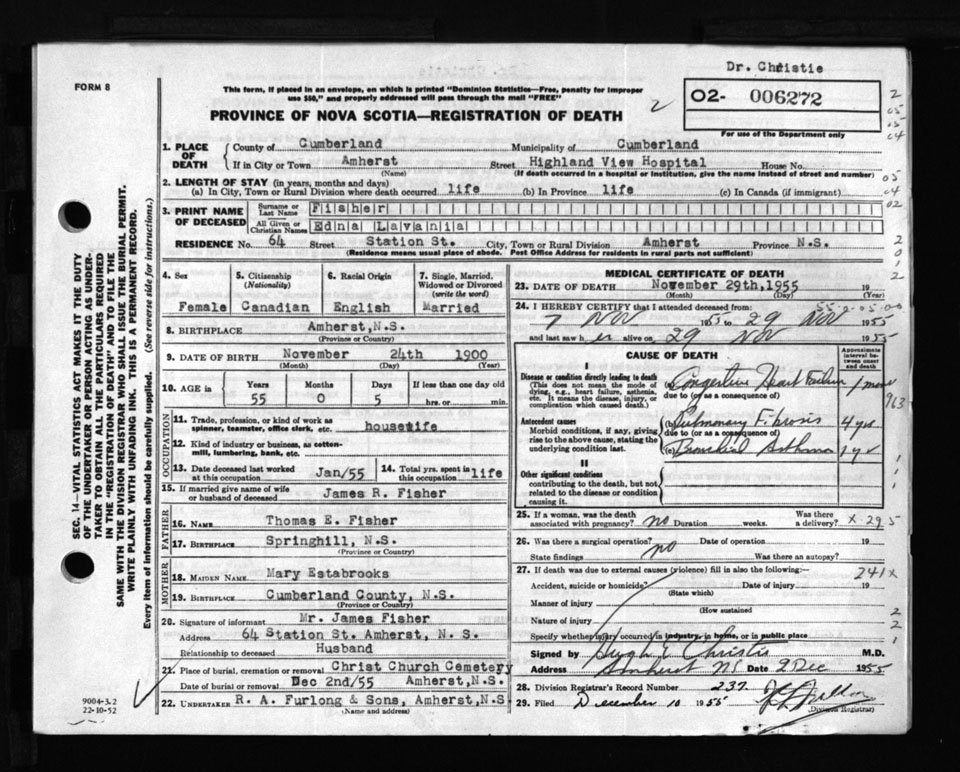 Dr. Christie
FORM 8
This form, if placed in an envelope, on which is printed "Dominion Statistics—Free, penalty for improper
use $50," and properly addressed will pass through the mail "FREE"
2
O2- 006272
For use of the Department only
PROVINCE OF NOVA SCOTIA—REGISTRATION OF DEATH
1. PLACE OF DEATH
County of Cumberland Municipality of Cumberland
If in City or Town Amherst Street Highland View Hospital House No.
(Name) (If death occurred in a hospital or institution, give the name instead of street and number)
2. LENGTH OF STAY (in years, months and days)
(a) In City, Town or Rural Division where death occurred life (b) In Province life (c) In Canada (if immigrant)
3. PRINT NAME OF DECEASED
Surname or Last Name Fisher
All Given or Christian Names Edna Lavania
RESIDENCE No. 64 Street Station St. City, Town or Rural Division Amherst Province N.S.
(Residence means usual place of abode. Post Office Address for residents in rural parts not sufficient)
4. Sex Female
5. Citizenship (Nationality) Canadian
6. Racial Origin English
7. Single, Married, Widowed or Divorced (write the word) Married
8. BIRTHPLACE Amherst, N.S.
(Province or Country)
9. DATE OF BIRTH November 24th 1900
(Month) (Day) (Year)
10. AGE in Years 55 Months 0 Days 5 If less than one day old hrs. or min.
OCCUPATION
11. Trade, profession, or kind of work as
spinner, teamster, office clerk, etc. housewife
12. Kind of industry or business, as cotton-
mill, lumbering, bank, etc.
13. Date deceased last worked at this occupation Jan/55 14. Total yrs. spent in this occupation life
15. If married give name of wife or husband of deceased James R. Fisher
FATHER
16. NAME Thomas E. Fisher
17. BIRTHPLACE Springhill, N.S.
(Province or Country)
MOTHER
18. MAIDEN NAME Mary Estabrooks
19. BIRTHPLACE Cumberland County, N.S.
(Province or Country)
20. Signature of informant Mr. James Fisher
Address 64 Station St. Amherst, N. S.
Relationship to deceased Husband
21. Place of burial, cremation or removal Christ Church Cemetery
Date of burial or removal Dec 2nd/55 Amherst, N.S.
22. UNDERTAKER R. A. Furlong & Sons, Amherst, N.S.
(Name and address)
MEDICAL CERTIFICATE OF DEATH
23. DATE OF DEATH November 29th, 1955 19
(Month) (Day) (Year)
24. I HEREBY CERTIFY that I attended deceased from:
7 Nov 1955 to 29 Nov 1955
and last saw her alive on 29 Nov 1955
CAUSE OF DEATH
Approximate interval between onset and death
I
Disease or condition directly leading to death
(This does not mean the mode of
dying, e.g., heart failure, asthenia,
etc. It means the disease, injury, or
complication which caused death.)
(a) Congestive Heart Failure
due to (or as a consequence of)
Antecedent causes
Morbid conditions, if any, giving
rise to the above cause, stating the
underlying condition last.
(b) Pulmonary Fibrosis 4 yrs
due to (or as a consequence of)
(c) Bronchial Asthma 1 yr
II
Other significant conditions
contributing to the death, but not
related to the disease or condition
causing it.
25. If a woman, was the death associated with pregnancy? no Duration weeks. Was there a delivery? X-295
26. Was there a surgical operation? no Date of operation 19
State findings Was there an autopsy?
27. If death was due to external causes (violence) fill in also the following:—
241x
Accident, suicide or homicide? Date of injury 19
(State which)
Manner of injury
(How sustained
Nature of injury
Specify whether injury occurred in industry, in home, or in public place
Signed by Hugh E Christie M.D.
Address Amherst NS Date 2 Dec 1955
28. Division Registrar's Record Number 237.
29. Filed December 10 1955
(Division Registrar)
SEC. 14—VITAL STATISTICS ACT MAKES IT THE DUTY
OF THE UNDERTAKER OR PERSON ACTING AS UNDER-
TAKER TO OBTAIN ALL THE PARTICULARS REQUIRED
IN THE "REGISTRATION OF DEATH" AND TO FILE THE
SAME WITH THE DIVISION REGISTRAR WHO SHALL ISSUE THE BURIAL PERMIT.
WRITE PLAINLY WITH UNFADING INK. THIS IS A PERMANENT RECORD.
Every item of information should be carefully supplied. (See reverse side for instructions.)
9004-3.2
22-10-52